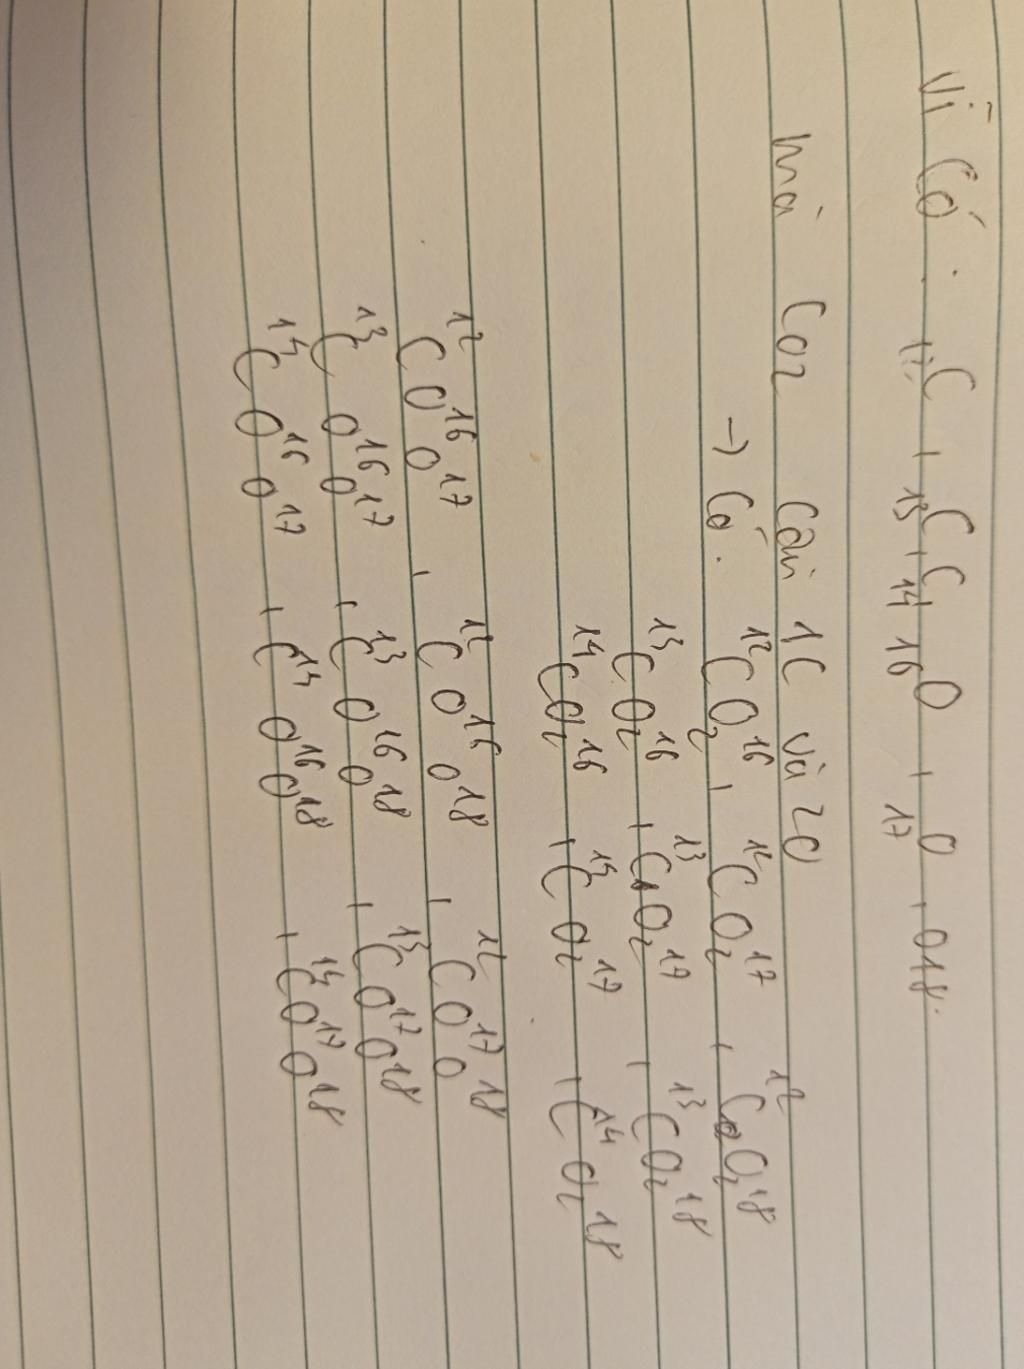 Vì Có: ¹²C, ¹³C, ¹⁴C, ¹⁶O, ¹⁷O, O18.
mà CO2 Cần 1C và 2O
→ Có: ¹²CO₂¹⁶, ¹²CO₂¹⁷, ¹²CO₂¹⁸
¹³CO₂¹⁶, ¹³CO₂¹⁷, ¹³CO₂¹⁸
¹⁴CO₂¹⁶, ¹⁴CO₂¹⁷, ¹⁴CO₂¹⁸
¹²CO¹⁶O¹⁷, ¹²CO¹⁶O¹⁸, ¹²CO¹⁷O¹⁸
¹³CO¹⁶O¹⁷, ¹³CO¹⁶O¹⁸, ¹³CO¹⁷O¹⁸
¹⁴CO¹⁶O¹⁷, ¹⁴CO¹⁶O¹⁸, ¹⁴CO¹⁷O¹⁸